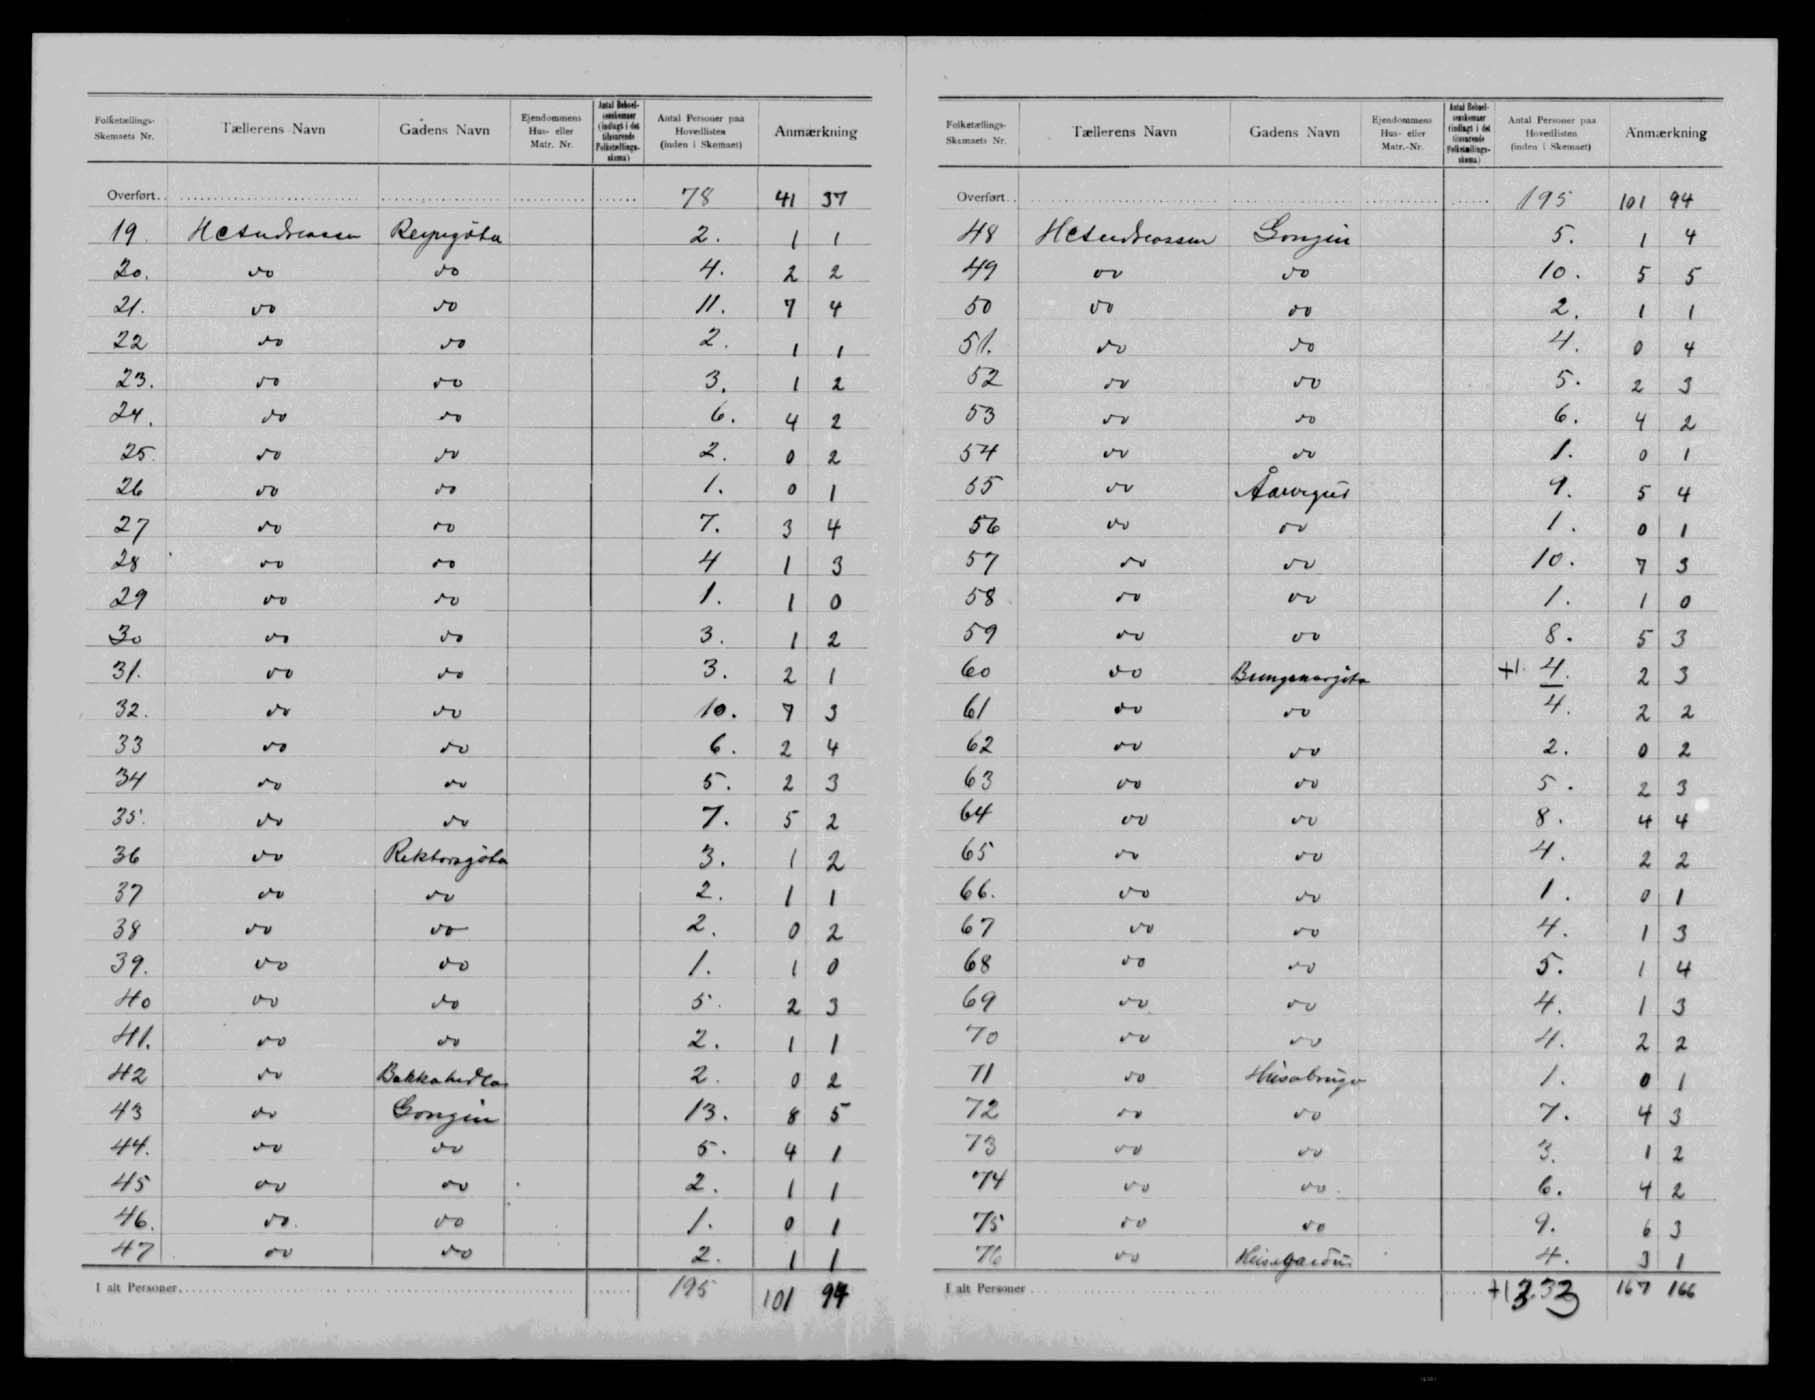 Folketællings-Skemaets Nr. Tællerens Navn Gadens Navn Ejendommens Hus- eller Matr. Nr. Antal Beboelsesskemaer (indlagt i det tilsvarende Folketællingsskema) Antal Personer paa Hovedlisten (inden i Skemaet) Anmærkning
Overført 78 41 37
19. HCAndreassen 2. 1 1
20. do do 4. 2 2
21. do do 11. 7 4
22 do do 2. 1 1
23. do do 3. 1 2
24. do do 6. 4 2
25. do do 2. 0 2
26 do do 1. 0 1
27 do do 7. 3 4
28 do do 4 1 3
29 do do 1. 1 0
30 do do 3. 1 2
31. do do 3. 2 1
32. do do 10. 7 3
33 do do 6. 2 4
34 do do 5. 2 3
35. do do 7. 5 2
36 do Rektaragøta 3. 1 2
37 do do 2. 1 1
38 do do 2. 0 2
39. do do 1. 1 0
40 do do 5. 2 3
41. do do 2. 1 1
42 do Bakkahedla 2. 0 2
43 do Gongin 13. 8 5
44. do do 5. 4 1
45 do do 2. 1 1
46. do do 1. 0 1
47 do do 2. 1 1
I alt Personer 195 101 94
Folketællings-Skemaets Nr. Tællerens Navn Gadens Navn Ejendommens Hus- eller Matr.-Nr. Antal Beboelsesskemaer (indlagt i det tilsvarende Folketællingsskema) Antal Personer paa Hovedlisten (inden i Skemaet) Anmærkning
Overført 195 101 94
48 HCAndreassen Gongin 5. 1 4
49 do do 10. 5 5
50 do do 2. 1 1
51. do do 4. 0 4
52 do do 5. 2 3
53 do do 6. 4 2
54 do do 1. 0 1
55 do 9. 5 4
56 do do 1. 0 1
57 do do 10. 7 3
58 do do 1. 1 0
59 do do 8. 5 3
60 do +1. 4. 2 3
61 do do 4. 2 2
62 do do 2. 0 2
63 do do 5. 2 3
64 do do 8. 4 4
65 do do 4. 2 2
66. do do 1. 0 1
67 do do 4. 1 3
68 do do 5. 1 4
69 do do 4. 1 3
70 do do 4. 2 2
71 do Húsabrúgv 1. 0 1
72 do do 7. 4 3
73 do do 3. 1 2
74 do do 6. 4 2
75 do do 9. 6 3
76 do 4. 3 1
I alt Personer +1 332 167 166